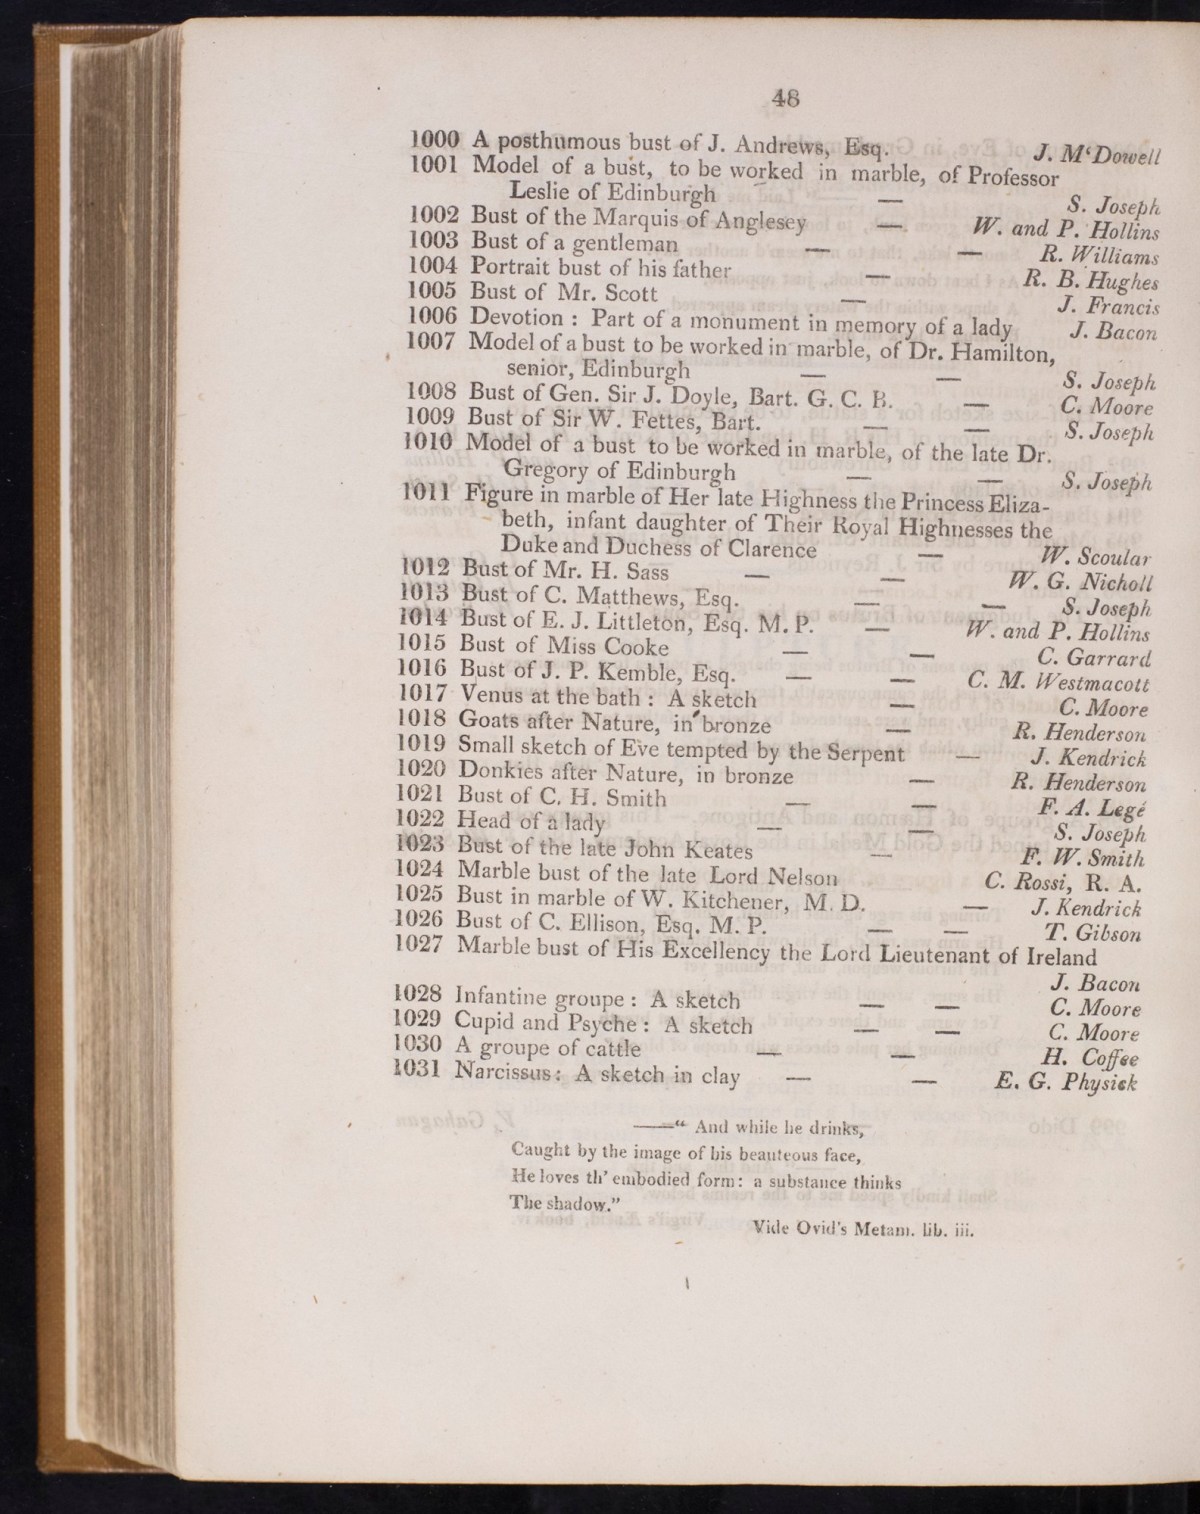 48
1000 A posthumous bust of J. Andrews, Esq. J. M‘Dowell
1001 Model of a bust, to be worked in marble, of Professor
Leslie of Edinburgh — S. Joseph
1002 Bust of the Marquis of Anglesey — W. and P. Hollins
1003 Bust of a gentleman — — R. Williams
1004 Portrait bust of his father — R. B. Hughes
1005 Bust of Mr. Scott — J. Francis
1006 Devotion : Part of a monument in memory of a lady J. Bacon
1007 Model of a bust to be worked in marble, of Dr. Hamilton,
senior, Edinburgh — — S. Joseph
1008 Bust of Gen. Sir J. Doyle, Bart. G. C. B. — C. Moore
1009 Bust of Sir W. Fettes, Bart. — — S. Joseph
1010 Model of a bust to be worked in marble, of the late Dr.
Gregory of Edinburgh — — S. Joseph
1011 Figure in marble of Her late Highness the Princess Eliza-
beth, infant daughter of Their Royal Highnesses the
Duke and Duchess of Clarence — W. Scoular
1012 Bust of Mr. H. Sass — — W. G. Nicholl
1013 Bust of C. Matthews, Esq. — — S. Joseph
1014 Bust of E. J. Littleton, Esq. M. P. — W. and P. Hollins
1015 Bust of Miss Cooke — — C. Garrard
1016 Bust of J. P. Kemble, Esq. — — C. M. Westmacott
1017 Venus at the bath : A sketch — C. Moore
1018 Goats after Nature, in bronze — R. Henderson
1019 Small sketch of Eve tempted by the Serpent — J. Kendrick
1020 Donkies after Nature, in bronze — R. Henderson
1021 Bust of C. H. Smith — — F. A. Legé
1022 Head of a lady — — S. Joseph
1023 Bust of the late John Keates — F. W. Smith
1024 Marble bust of the late Lord Nelson C. Rossi, R. A.
1025 Bust in marble of W. Kitchener, M. D. — J. Kendrick
1026 Bust of C. Ellison, Esq. M. P. — — T. Gibson
1027 Marble bust of His Excellency the Lord Lieutenant of Ireland
J. Bacon
1028 Infantine groupe : A sketch — — C. Moore
1029 Cupid and Psyche : A sketch — — C. Moore
1030 A groupe of cattle — — H. Coffee
1031 Narcissus : A sketch in clay — — E. G. Physick
——“ And while he drinks,
Caught by the image of his beauteous face,
He loves th’ embodied form: a substance thinks
The shadow.”
Vide Ovid's Metam. lib. iii.